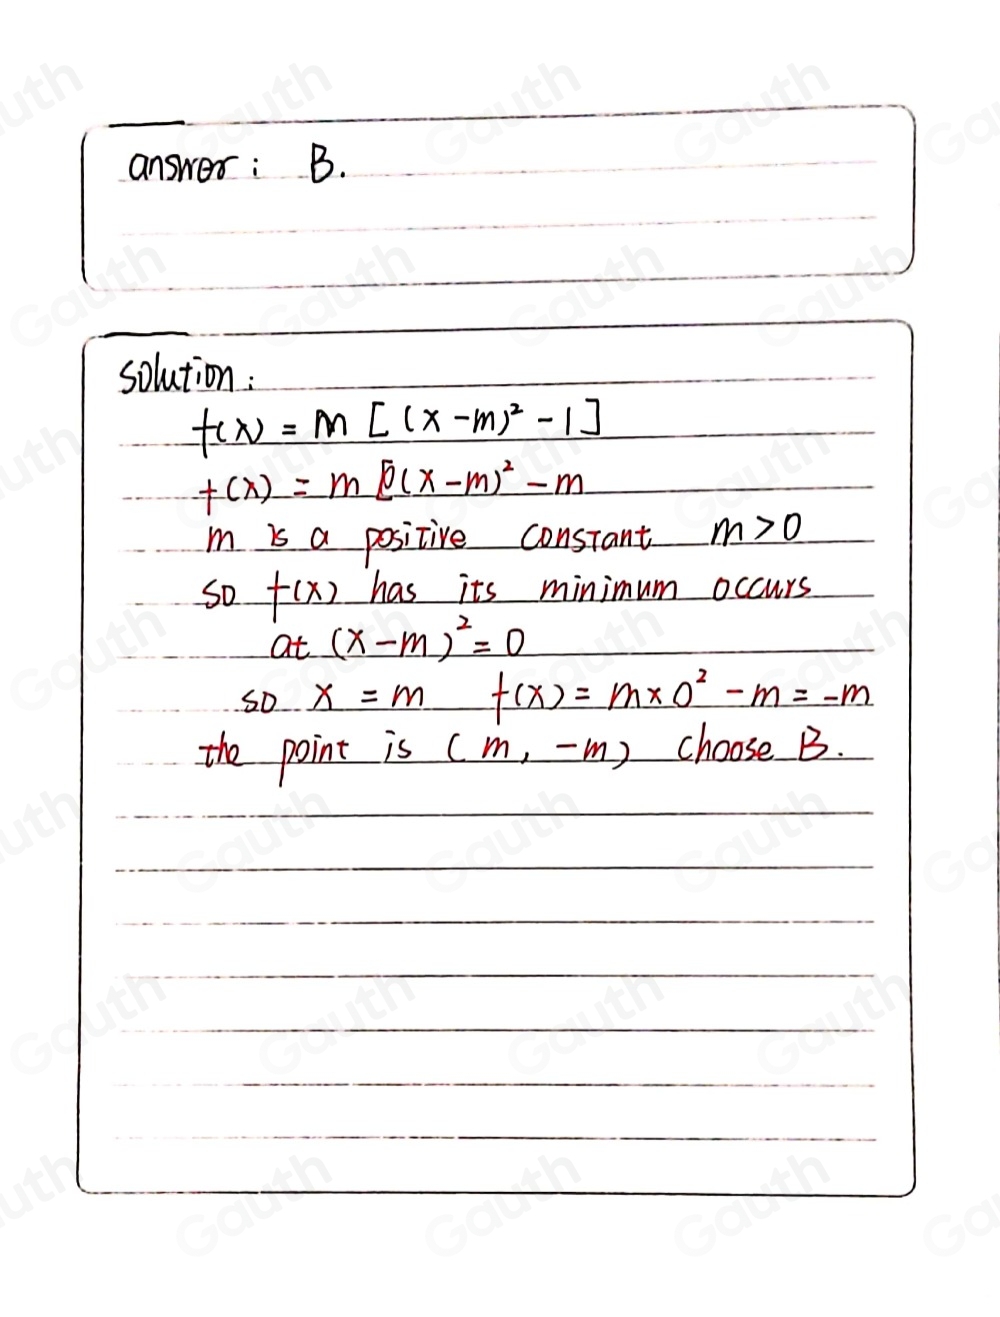 answer: B.
solution:
f(x) = m [(x-m)² -1]
f(x) = m (x-m)² - m
m is a positive constant m>0
so f(x) has its minimum occurs
at (x-m)² = 0
so x = m f(x) = m×0² - m = -m
the point is (m, -m) choose B.